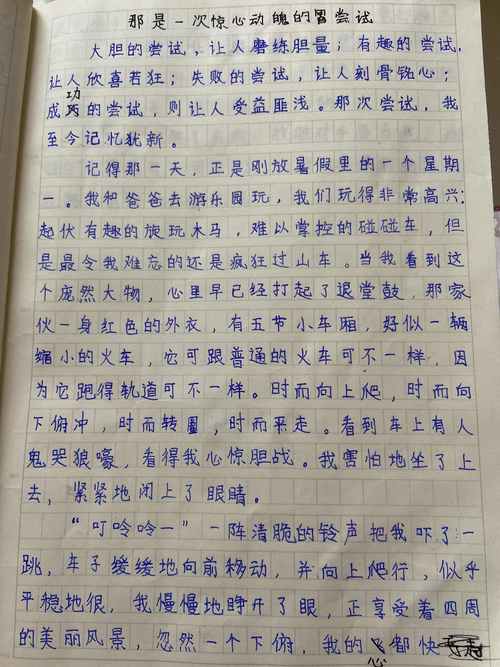 那是一次惊心动魄的冒尝试
大胆的尝试，让人磨练胆量；有趣的尝试，
让人欣喜若狂；失败的尝试，让人刻骨铭心；
成功的尝试，则让人受益匪浅。那次尝试，我
至今记忆犹新。
记得那一天，正是刚放暑假里的一个星期
一。我和爸爸去游乐园玩，我们玩得非常高兴：
起伏有趣的旋玩木马，难以掌控的碰碰车，但
是最令我难忘的还是疯狂过山车。当我看到这
个庞然大物，心里早已经打起了退堂鼓，那家
伙一身红色的外衣，有五节小车厢，好似一辆
缩小的火车，它可跟普通的火车可不一样，因
为它跑得轨道可不一样。时而向上爬，时而向
下俯冲，时而转圈，时而平走。看到车上有人
鬼哭狼嚎，看得我心惊胆战。我害怕地坐了上
去，紧紧地闭上了眼睛。
“叮呤呤一”一阵清脆的铃声把我吓了一
跳，车子缓缓地向前移动，并向上爬行，似乎
平稳地很，我慢慢地睁开了眼，正享受着四周
的美丽风景，忽然一个下俯，我的心都快